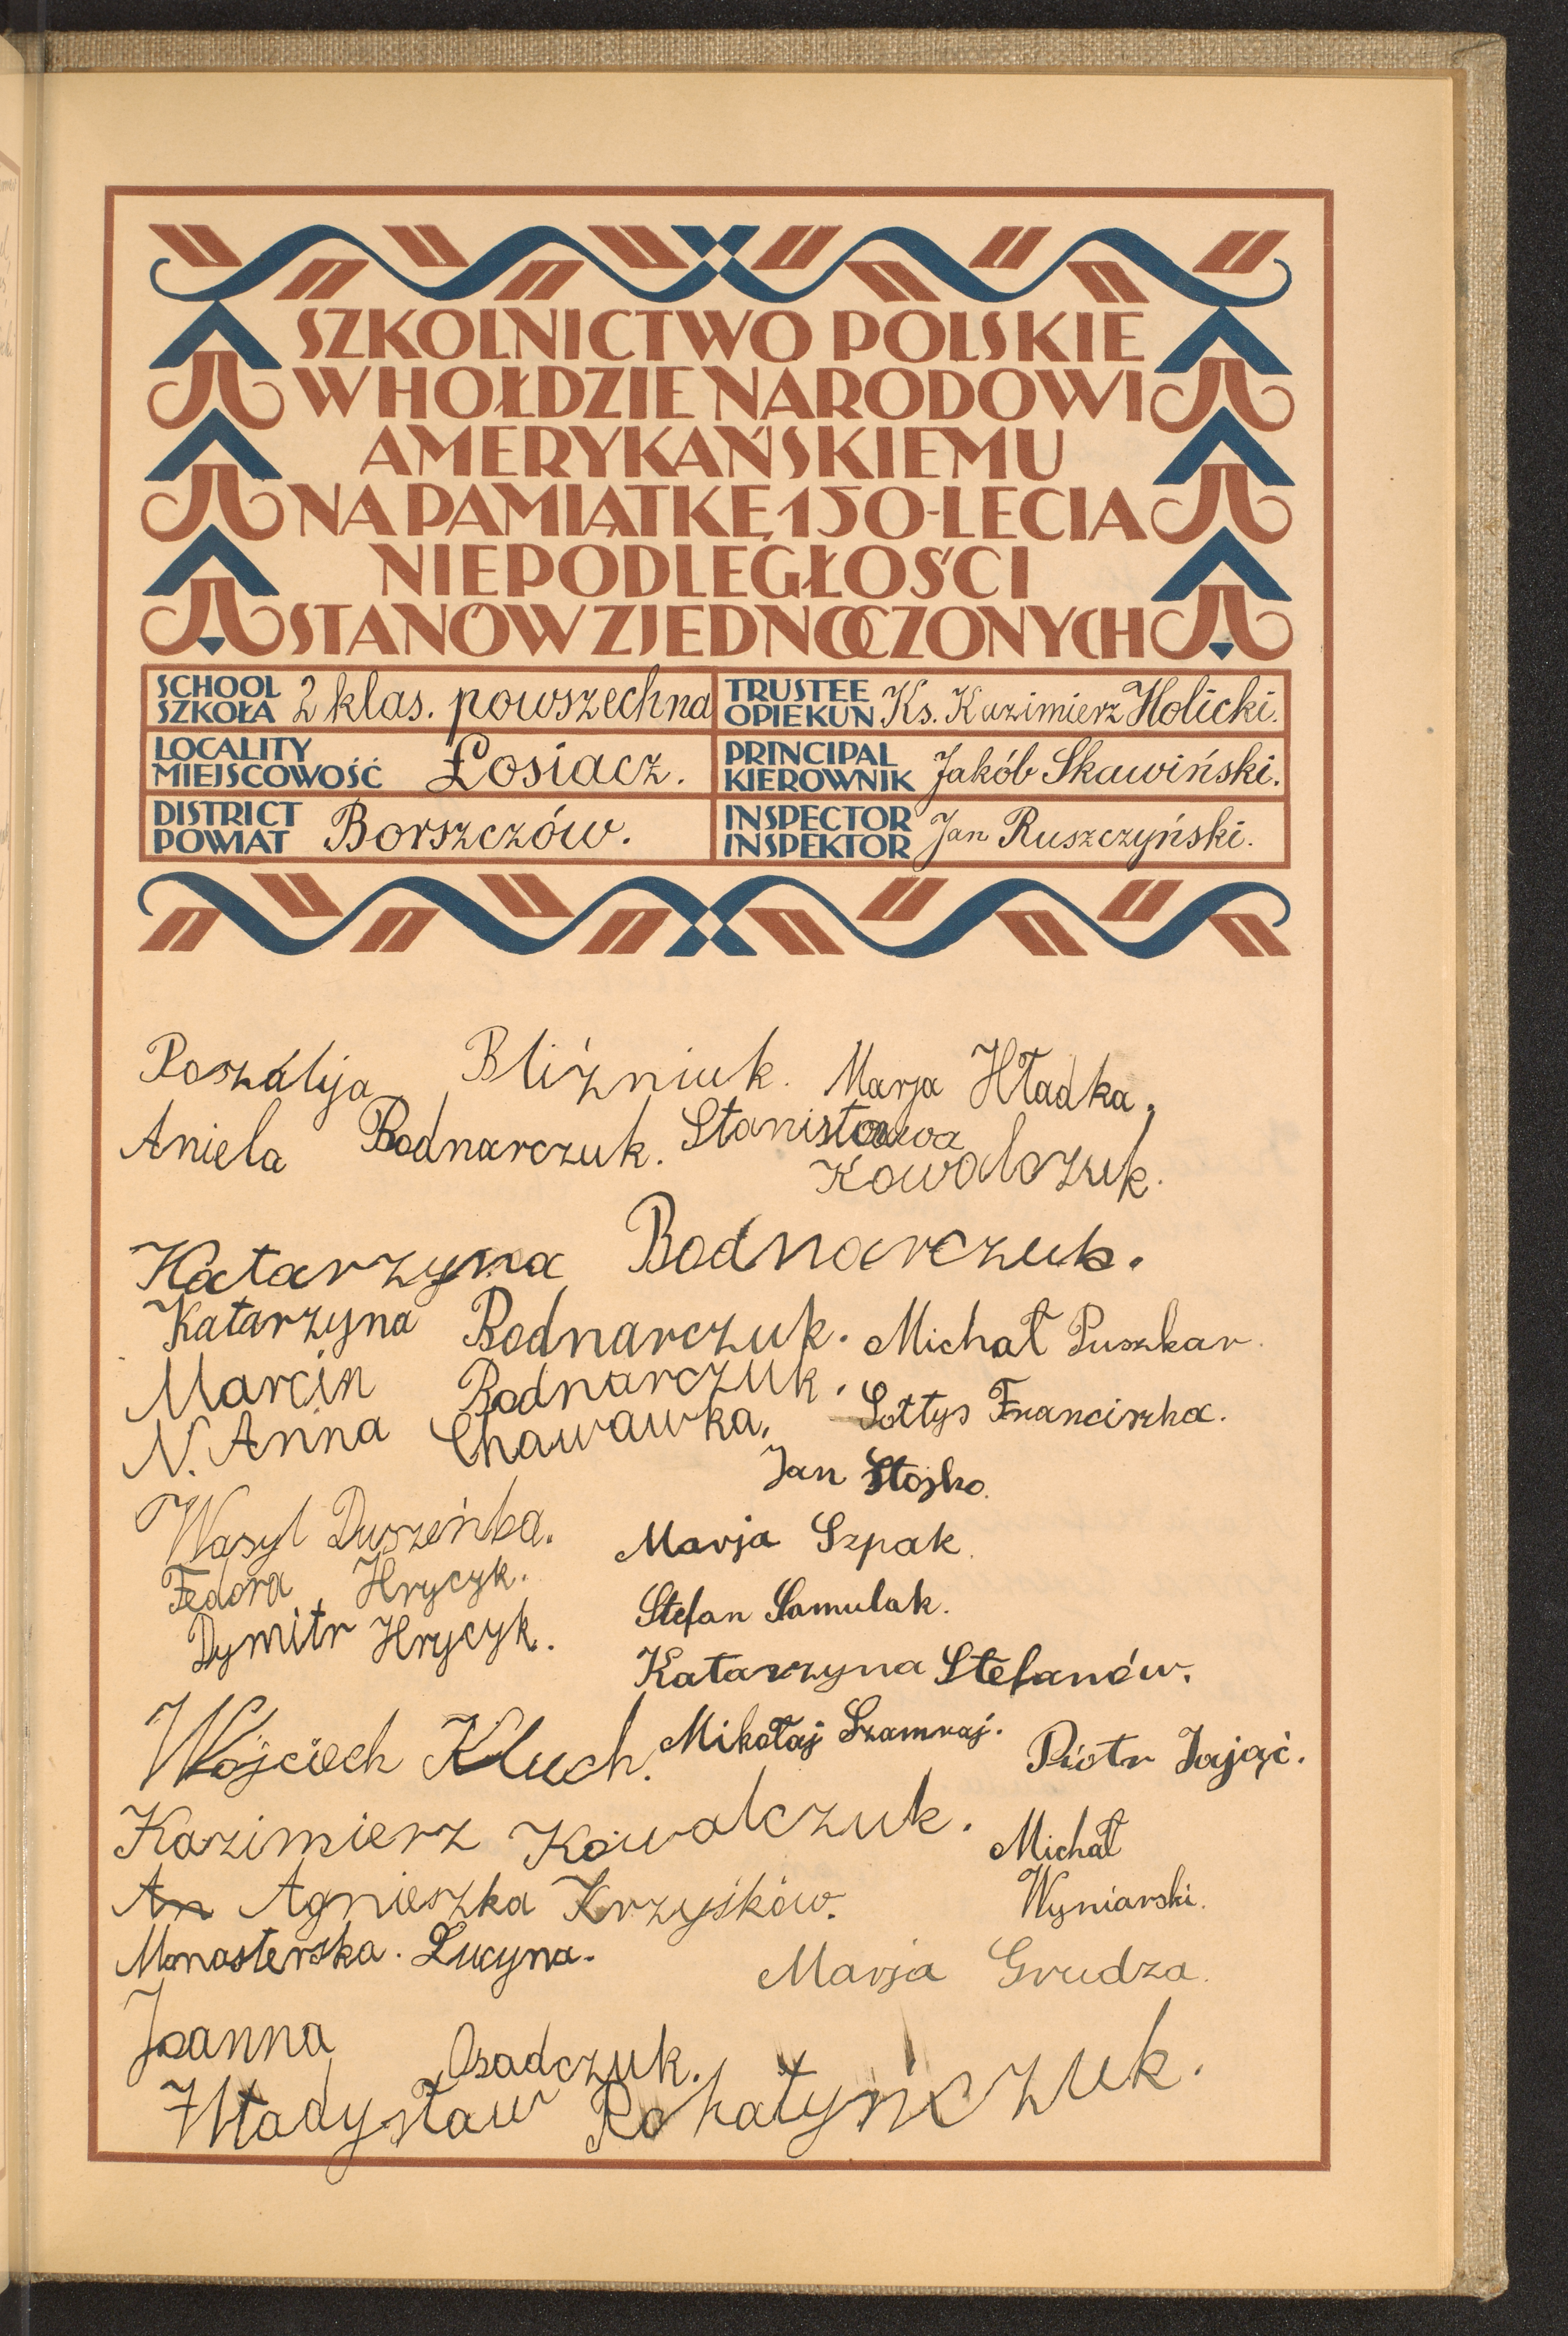 SZKOLNICTWO POLSKIE
W HOŁDZIE NARODOWI
AMERYKAŃSKIEMU
NA PAMIĄTKĘ 150-LECIA
NIEPODLEGŁOŚCI
STANÓW ZJEDNOCZONYCH
SCHOOL
SZKOŁA 2 klas. powszechna
TRUSTEE
OPIEKUN Ks. Kazimierz Holicki.
LOCALITY
MIEJSCOWOŚĆ Łosiacz.
PRINCIPAL
KIEROWNIK Jakób Skawiński.
DISTRICT
POWIAT Borszczów.
INSPECTOR
INSPEKTOR Jan Ruszczyński.
Roszalija Bliźniuk. Marja Hładka.
Aniela Bodnarczuk. Stanisława
Kowalczuk.
Katarzyna Bodnarczuk.
Katarzyna Bodnarczuk. Michał Puszkar.
Marcin Bodnarczuk.
N. Anna Chawawka. Sołtys Franciszka.
Jan Stojko.
Wasyl Duszeńba.
Marja Szpak.
Fedora Hrycyk.
Stefan Samulak.
Dymitr Hrycyk.
Katarzyna Stefanów.
Wojciech Kluch. Mikołaj Szamraj. Piotr Zając.
Kazimierz Kowalczuk. Michał
Wyniarski.
An Agnieszka Krzyśków.
Monasterska. Lucyna.
Marja Grudza.
Joanna Osadczuk.
Władysław Rohatyńczuk.